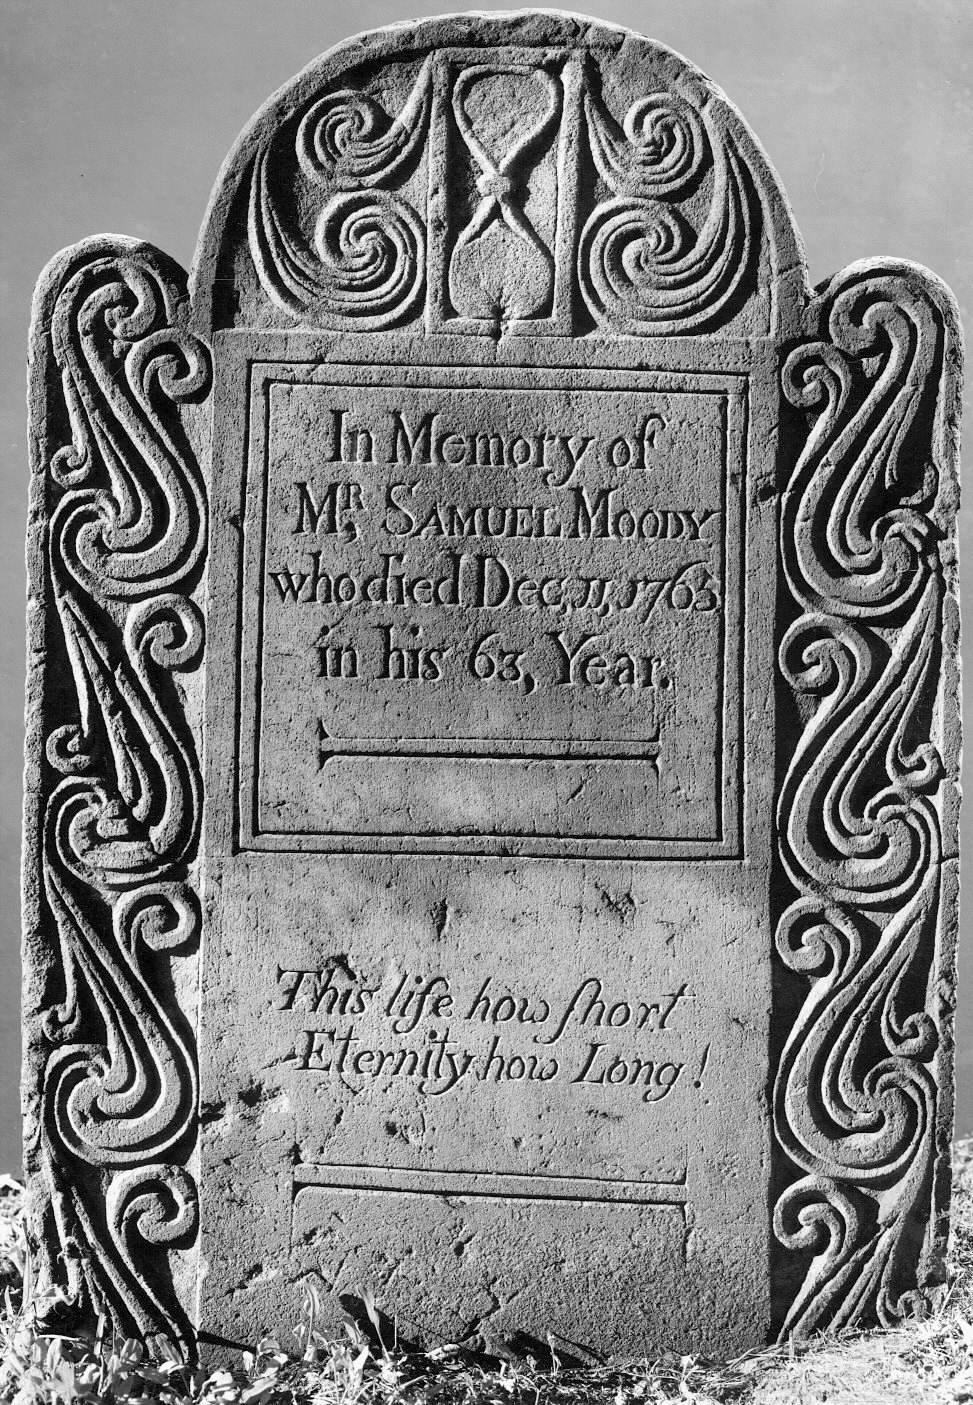 In Memory of
Mᴿ, SAMUEL MOODY
who died Dec, 11, 1763
in his 63, Year.
This life how ſhort
Eternity how Long!